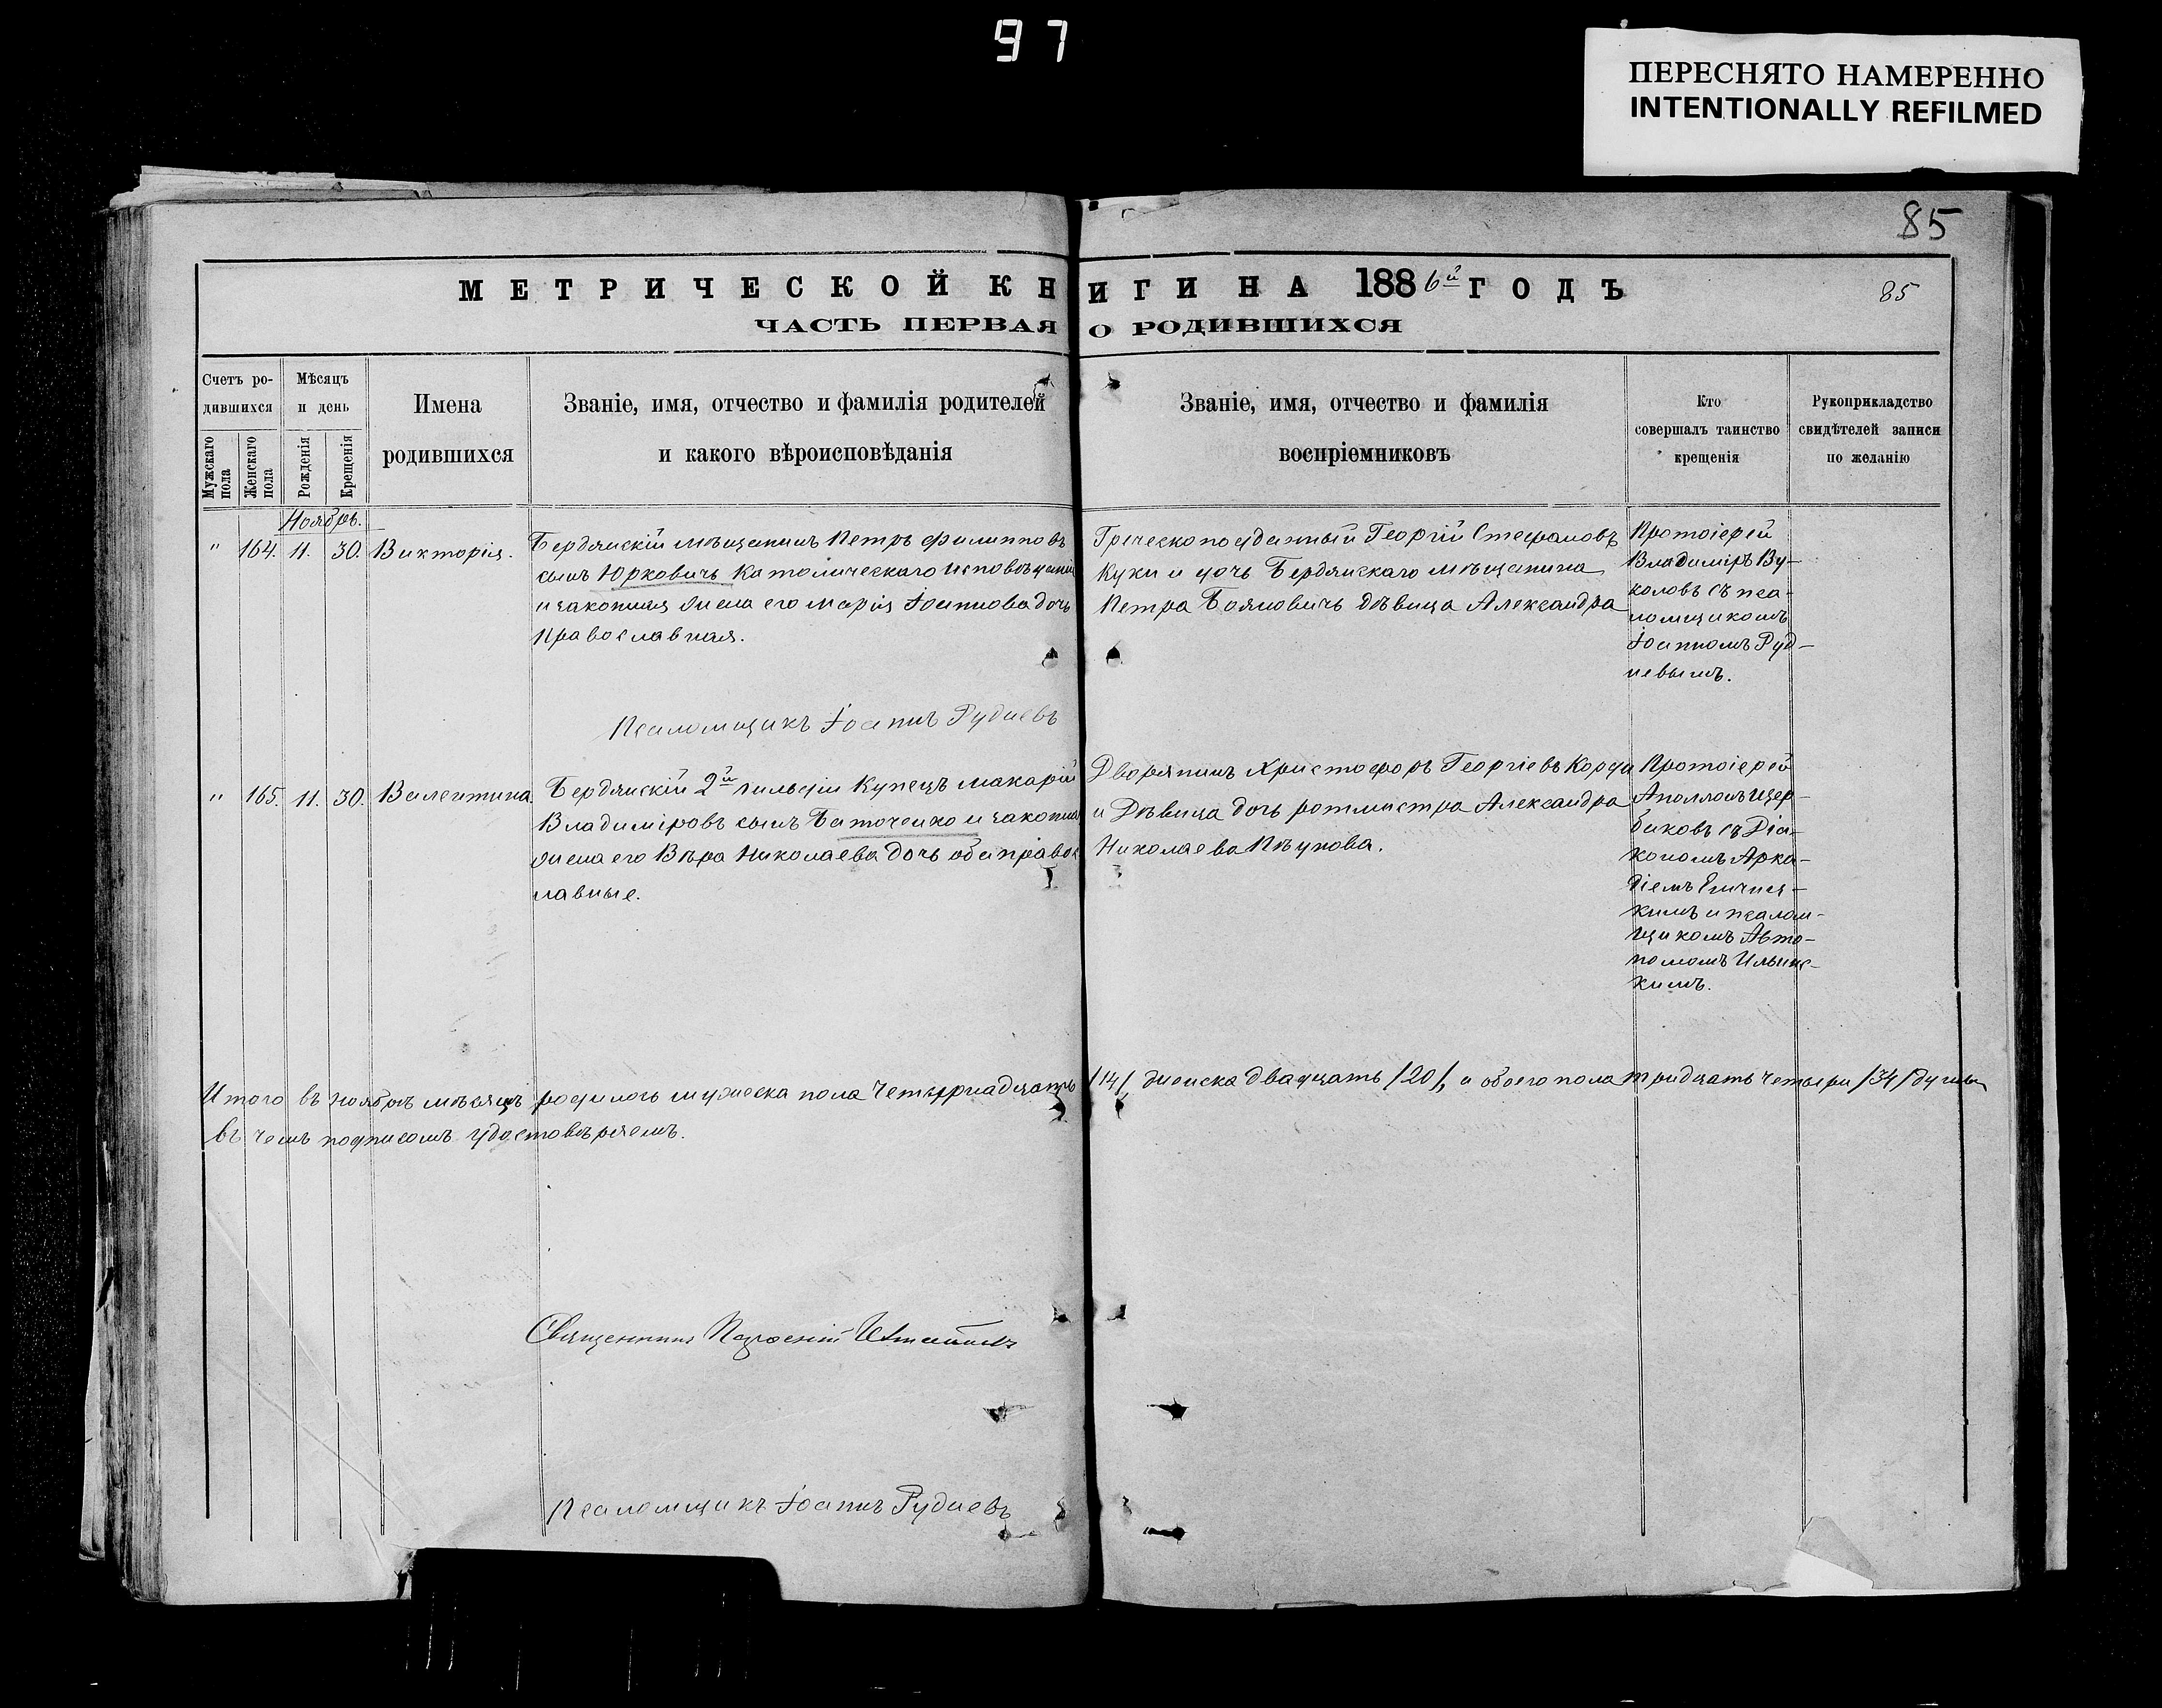 97
ПЕРЕСНЯТО НАМЕРЕННО
INTENTIONALLY REFILMED
85
МЕТРИЧЕСКОЙ КНИГИ НА 1886й ГОДЪ
85
ЧАСТЬ ПЕРВАЯ О РОДИВШИХСЯ
Счетъ ро-
дившихся
Мужскаго пола
Женскаго пола
Мѣсяцъ
и день
Рожденія
Крещенія
Имена
родившихся
Званіе, имя, отчество и фамилія родителей
и какого вѣроисповѣданія
Званіе, имя, отчество и фамилія
воспріемниковъ
Кто
совершалъ таинство
крещенія
Рукоприкладство
свидѣтелей записи
по желанію
Ноябрь.
" 164. 11. 30. Викторія.
Бердянскій мѣщанинъ Петръ Филипповъ
сынъ Юрковичъ Католическаго исповѣданія
и законная жена его Марія Іоаннова дочь
Православная.
Греческоподданный Георгій Стефановъ
Куки и дочь Бердянскаго мѣщанина
Петра Бояновичъ дѣвица Александра
Протоіерей
Владиміръ Ву-
коловъ съ пса-
ломщикомъ
Іоанномъ Руд-
невымъ.
Псаломщикъ Іоаннъ Рудневъ
" 165. 11. 30. Валентина.
Бердянскій 2й гильдіи Купецъ Макарій
Владиміровъ сынъ Баточенко и законная
жена его Вѣра Николаева дочь оба правос
лавные.
Дворянинъ Христофоръ Георгіевъ Корди
и Дѣвица дочь ротмистра Александра
Николаева Пѣунова.
Протоіерей
Аполлонъ Щер-
биковъ съ Діа-
кономъ Арка-
діемъ
кимъ и псалом-
щикомъ Авто-
номомъ Ильинс-
кимъ.
Итого въ ноябрѣ мѣсяцѣ родилось мужеска пола Четырнадцать /14/, женска двадцать /20/, а обоего пола тридцать четыри /34/ душы
въ чемъ подписомъ удостовѣряемъ.
Священникъ
Псаломщикъ Іоаннъ Рудневъ